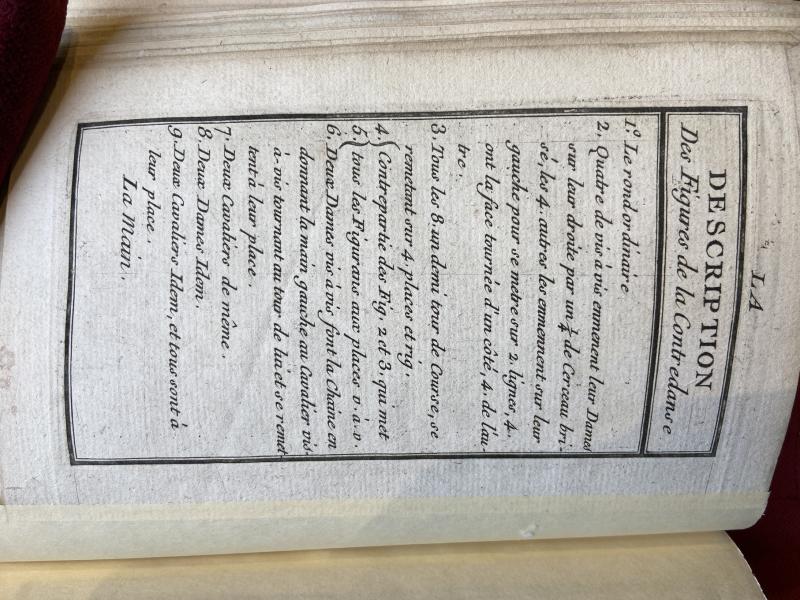 LA
DESCRIPTION
Des Figures de la Contredanse
1.º Le rond ordinaire
2. Quatre de vis à vis enmenent leur Dames
sur leur droite par un ¼ de Cerceau bri-
sé, les 4. autres les enmennent sur leur
gauche pour se metre sur 2. lignes, 4.
ont la face tournée d'un côté, 4. de l'au-
tre.
3. Tous les 8. un demi tour de Course, se
remetant sur 4. places et rig.
4. { Contrepartie des Fig. 2 et 3. qui met
5. { tous les Figurans aux places v. à. v.
6. Deux Dames vis à vis font la Chaine en
donnant la main gauche au Cavalier vis-
à-vis tournant au tour de lui et se remet-
tent à leur place.
7. Deux Cavaliers de même.
8. Deux Dames Idem.
9. Deux Cavaliers Idem, et tous sont à
leur place.
La Main.